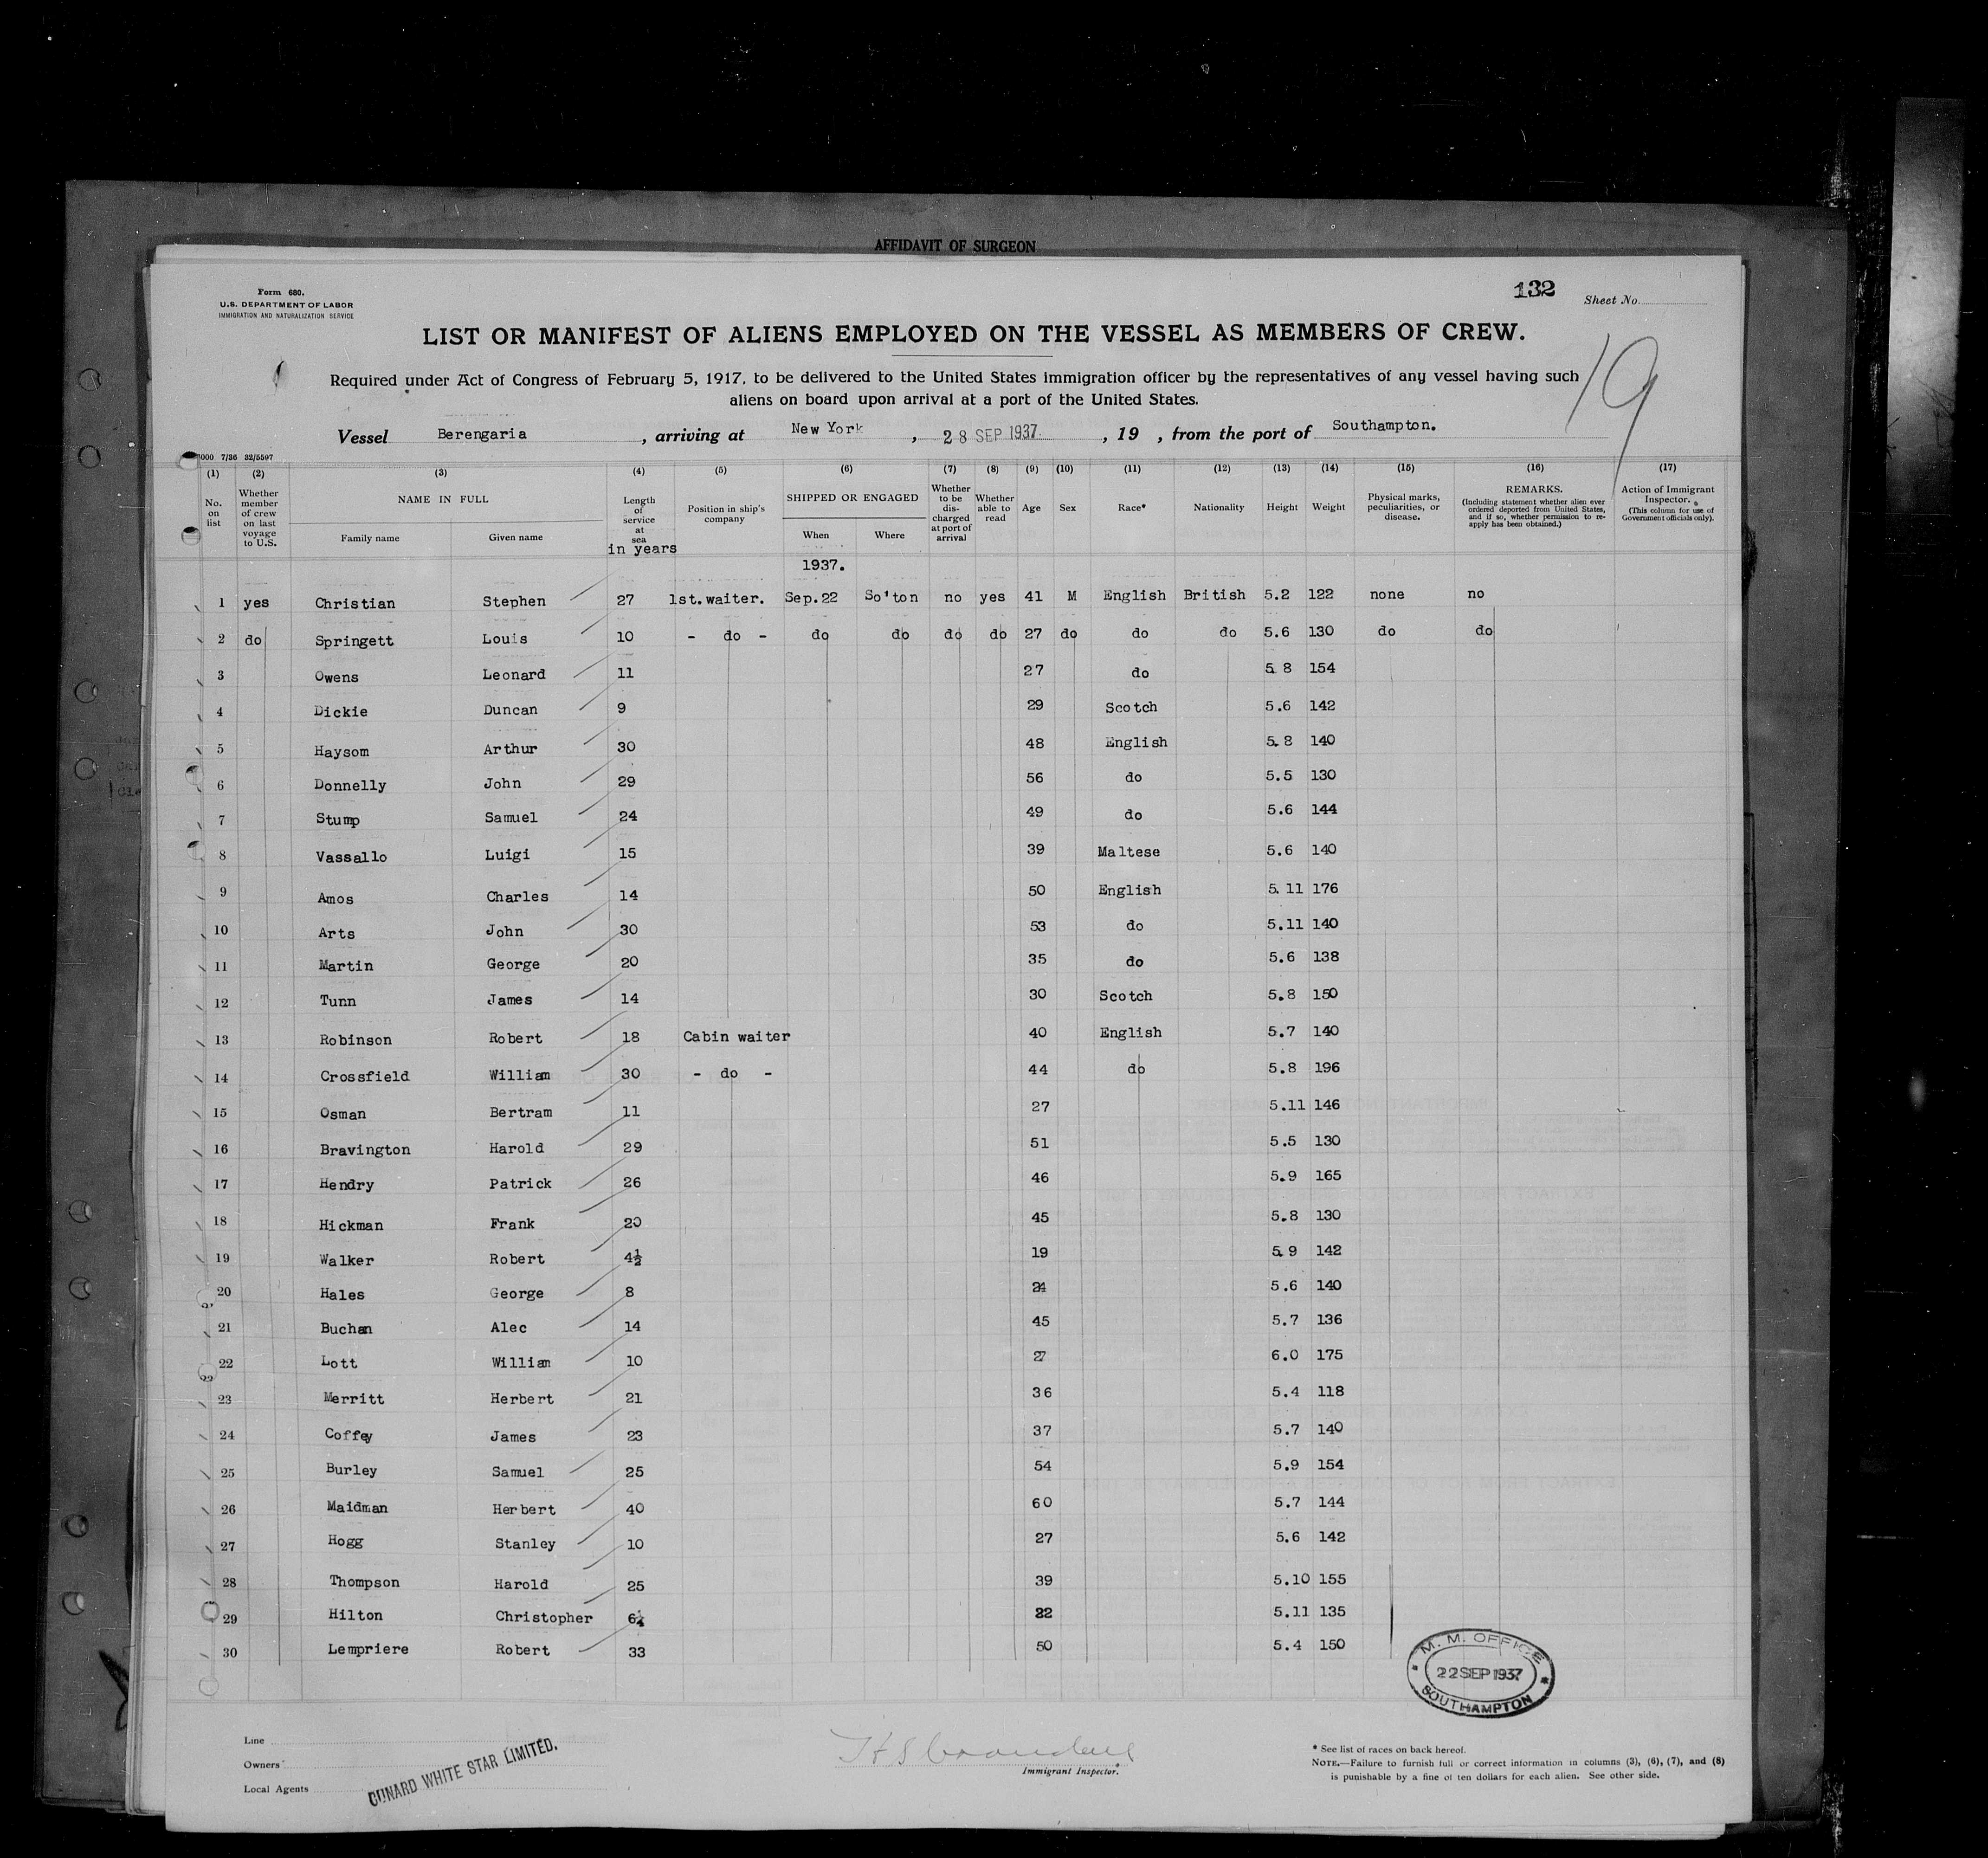 AFFIDAVIT OF SURGEON
Form 680.
U.S. DEPARTMENT OF LABOR
IMMIGRATION AND NATURALIZATION SERVICE
132
Sheet No.
19
LIST OR MANIFEST OF ALIENS EMPLOYED ON THE VESSEL AS MEMBERS OF CREW.
Required under Act of Congress of February 5, 1917, to be delivered to the United States immigration officer by the representatives of any vessel having such
aliens on board upon arrival at a port of the United States.
Vessel Berengaria , arriving at New York , 28 SEP 1937 , 19 , from the port of Southampton.
000 7/36 32/5597
(1) (2) (3) (4) (5) (6) (7) (8) (9) (10) (11) (12) (13) (14) (15) (16) (17)
No. on list
Whether member of crew on last voyage to U.S.
NAME IN FULL
Family name Given name
Length of service at sea
in years
Position in ship's company
SHIPPED OR ENGAGED
When Where
Whether to be discharged at port of arrival
Whether able to read
Age
Sex
Race*
Nationality
Height
Weight
Physical marks, peculiarities, or disease.
REMARKS.
(Including statement whether alien ever ordered deported from United States, and if so, whether permission to reapply has been obtained.)
Action of Immigrant Inspector.
(This column for use of Government officials only).
1937.
1 yes Christian Stephen 27 1st.waiter. Sep.22 So'ton no yes 41 M English British 5.2 122 none no
2 do Springett Louis 10 - do - do do do do 27 do do do 5.6 130 do do
3 Owens Leonard 11 27 do 5.8 154
4 Dickie Duncan 9 29 Scotch 5.6 142
5 Haysom Arthur 30 48 English 5.8 140
6 Donnelly John 29 56 do 5.5 130
7 Stump Samuel 24 49 do 5.6 144
8 Vassallo Luigi 15 39 Maltese 5.6 140
9 Amos Charles 14 50 English 5.11 176
10 Arts John 30 53 do 5.11 140
11 Martin George 20 35 do 5.6 138
12 Tunn James 14 30 Scotch 5.8 150
13 Robinson Robert 18 Cabin waiter 40 English 5.7 140
14 Crossfield William 30 - do - 44 do 5.8 196
15 Osman Bertram 11 27 5.11 146
16 Bravington Harold 29 51 5.5 130
17 Hendry Patrick 26 46 5.9 165
18 Hickman Frank 20 45 5.8 130
19 Walker Robert 4½ 19 5.9 142
20 Hales George 8 24 5.6 140
21 Buchan Alec 14 45 5.7 136
22 Lott William 10 27 6.0 175
23 Merritt Herbert 21 36 5.4 118
24 Coffey James 23 37 5.7 140
25 Burley Samuel 25 54 5.9 154
26 Maidman Herbert 40 60 5.7 144
27 Hogg Stanley 10 27 5.6 142
28 Thompson Harold 25 39 5.10 155
29 Hilton Christopher 6¼ 22 5.11 135
30 Lempriere Robert 33 50 5.4 150
M. M. OFFICE
22 SEP 1937
SOUTHAMPTON
Line
Owners
Local Agents
CUNARD WHITE STAR LIMITED.
Immigrant Inspector.
* See list of races on back hereof.
NOTE.—Failure to furnish full or correct information in columns (3), (6), (7), and (8)
is punishable by a fine of ten dollars for each alien. See other side.